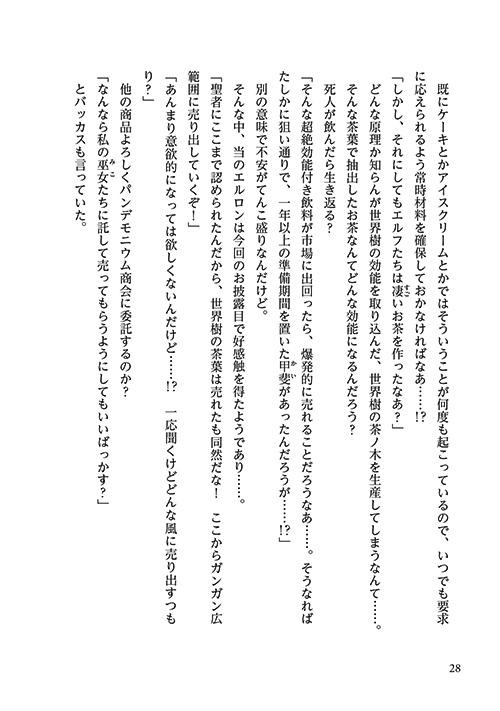 既にケーキとかアイスクリームとかではそういうことが何度も起こっているので、いつでも要求
に応えられるよう常時材料を確保しておかなければなあ……!?
「しかし、それにしてもエルフたちは凄いお茶を作ったなあ？」
どんな原理か知らんが世界樹の効能を取り込んだ、世界樹の茶ノ木を生産してしまうなんて……。
そんな茶葉で抽出したお茶なんてどんな効能になるんだろう？
死人が飲んだら生き返る？
「そんな超絶効能付き飲料が市場に出回ったら、爆発的に売れることだろうなあ……。そうなれば
たしかに狙い通りで、一年以上の準備期間を置いた甲斐があったんだろうが……!?」
別の意味で不安がてんこ盛りなんだけど。
そんな中、当のエルロンは今回のお披露目で好感触を得たようであり……。
「聖者にここまで認められたんだから、世界樹の茶葉は売れたも同然だな！　ここからガンガン広
範囲に売り出していくぞ！」
「あんまり意欲的になっては欲しくないんだけど……!?　一応聞くけどどんな風に売り出すつも
り？」
他の商品よろしくパンデモニウム商会に委託するのか？
「なんなら私の巫女たちに託して売ってもらうようにしてもいいばっかす？」
とバッカスも言っていた。
28